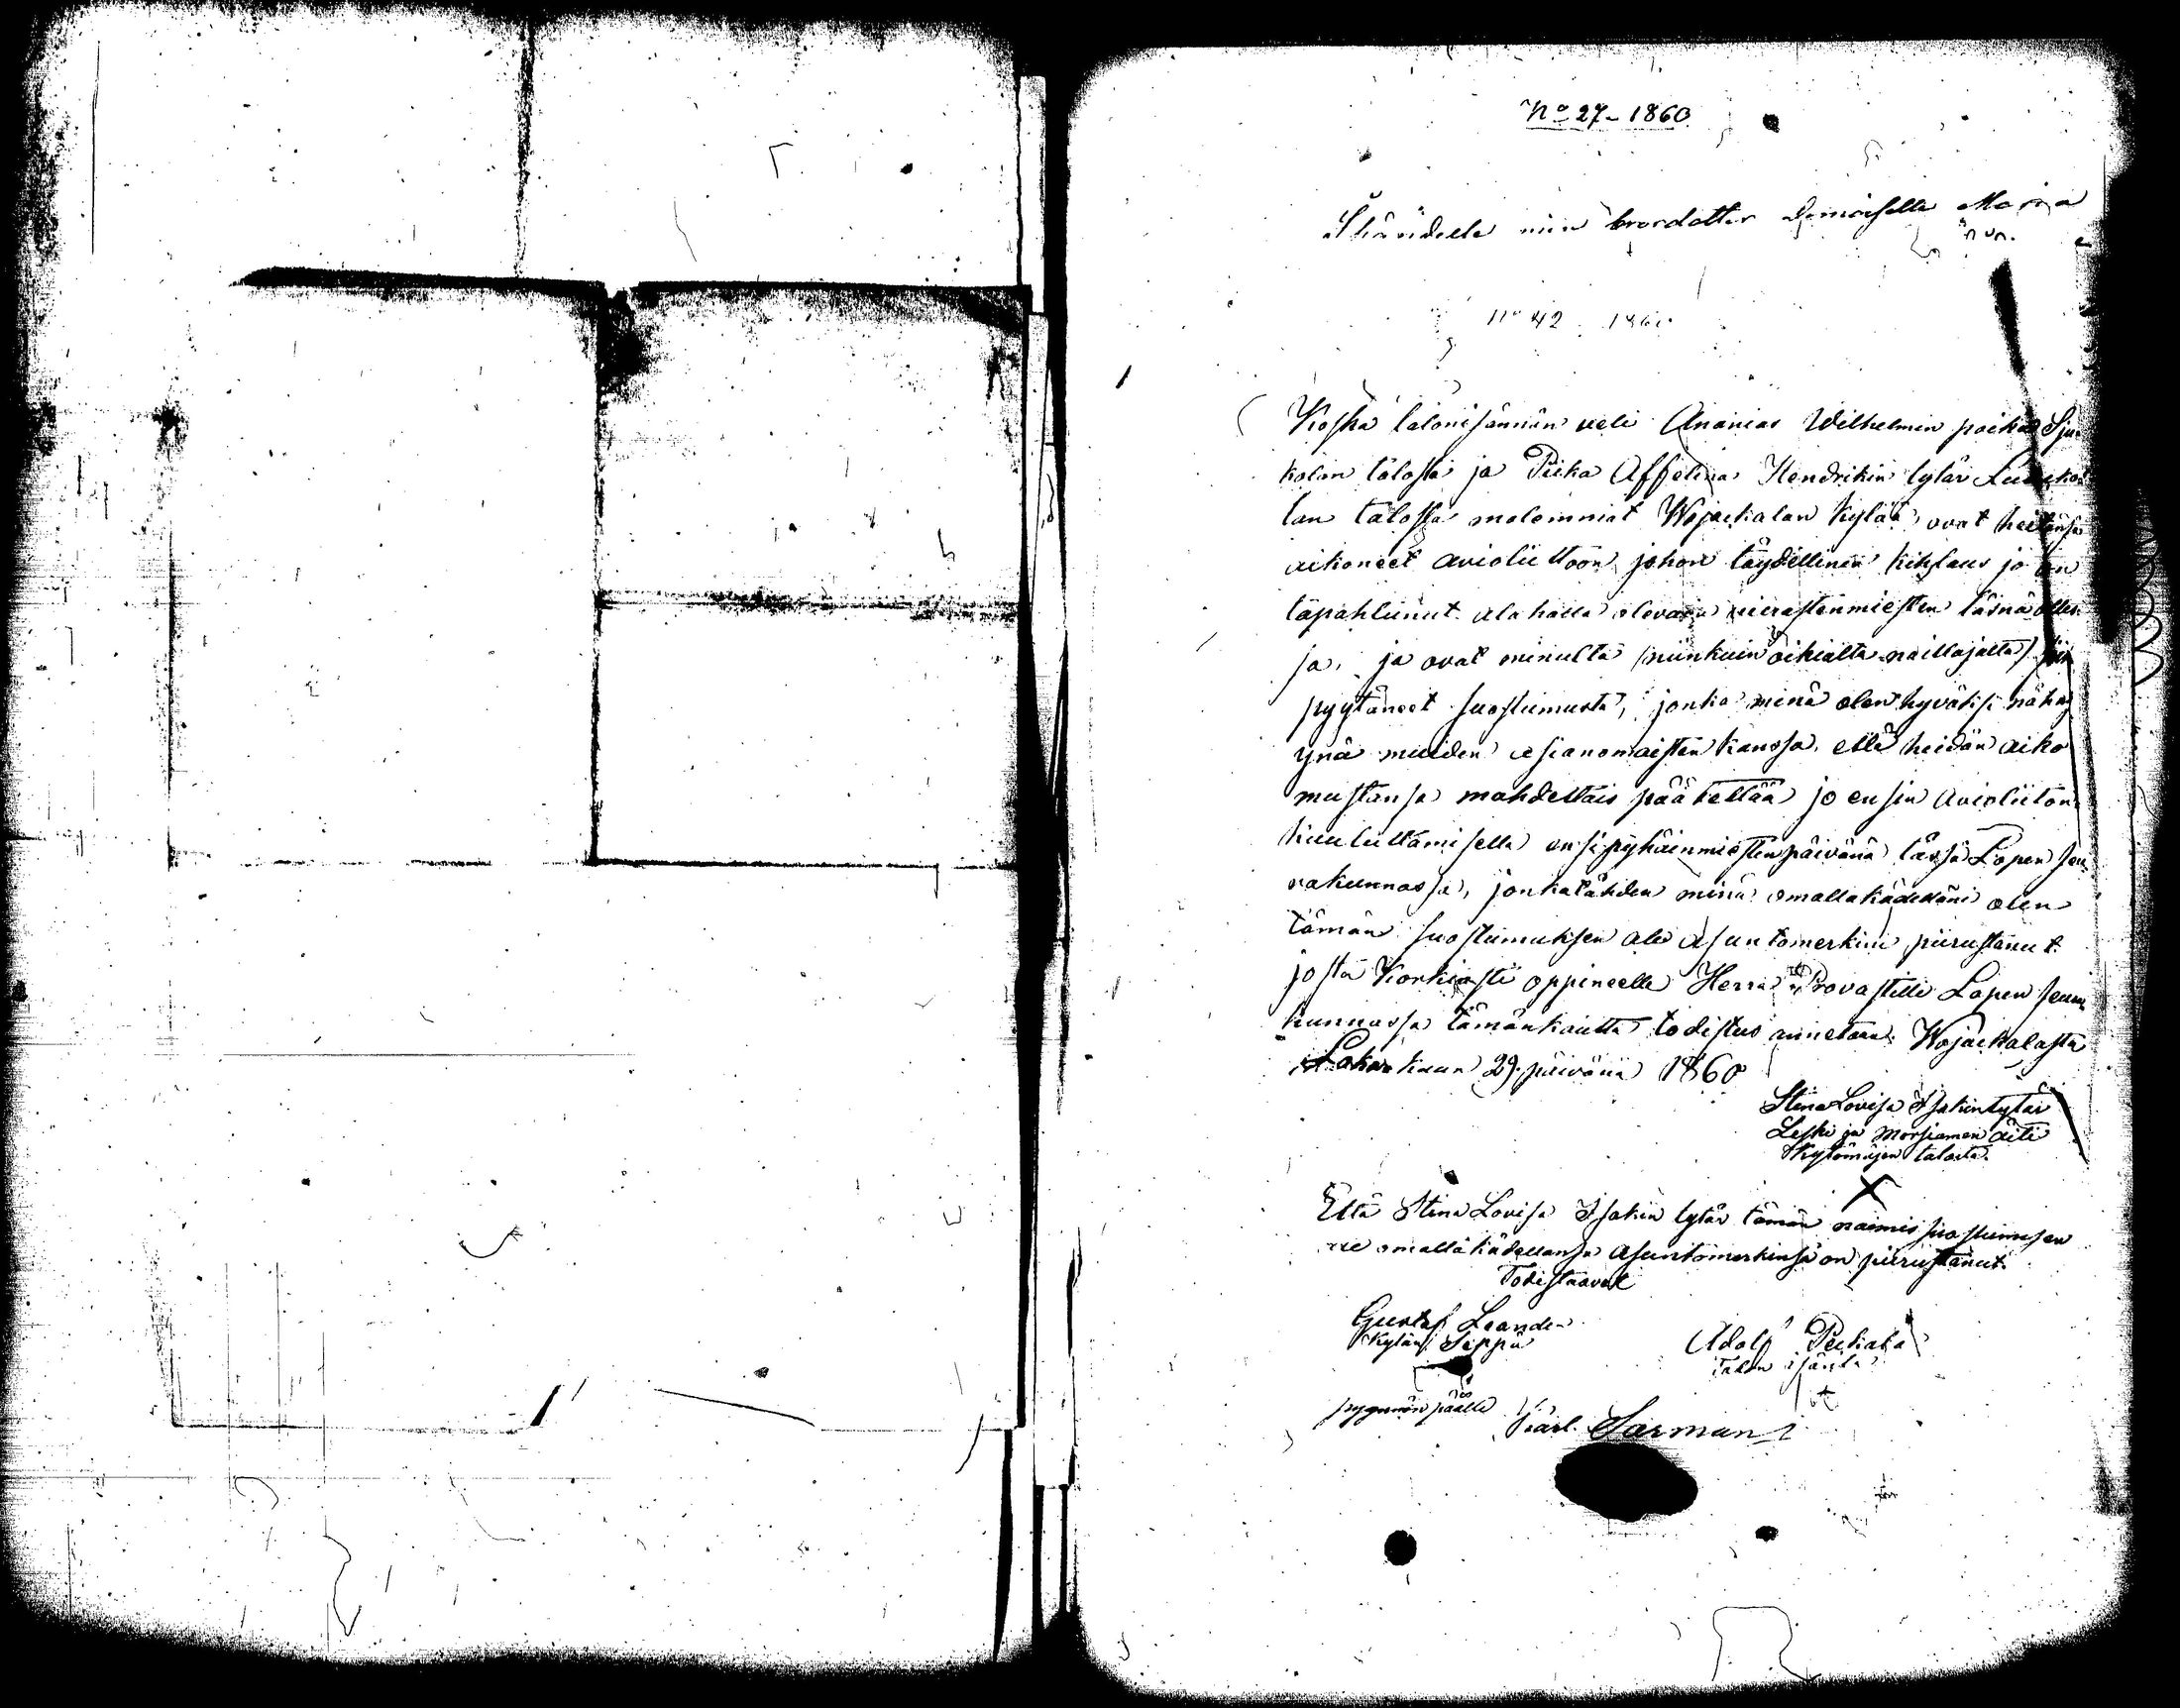 No 27 - 1860
min brordotter Maria
No 42 1860
Koska talonisännän veli Ananias Wilhelmin poika Sju-
kolan talosta ja Piika Affelina Hendrikin tytär
lan talossa molommat Wojackalan kylää, ovat heitänsä
aikoneet avioliittoon, johon täydellinen kihlaus jo on
tapahtunut alahalla olevain vierastenmiesten läsnä ollen-
sa, ja ovat minulta /niinkuin oikialta naittajalta/
pyytäneet suostumusta, jonka minä olen hyväksi nähny
ynä muiden asianomaisten kanssa, että heidän aiko
mustansa mahdettais päätettää jo ensin avioliiton
kuuluttamisella ensi pyhäinmiestenpäivänä tässä Lopen seu-
rakunnassa, jonkatähden minä omallakädelläni olen
tämän suostumuksen ale asuntomerkini piirustanut.
josta Korkiasti oppineelle Herra Provastille Lopen seura
kunnassa tämänkautta todistus annetaan. Wojackalasta
Lokakuun 29. päivänä 1860
Stina Lovisa Isakintytär
Leski ja Morsiamen äiti
Kytömäjen talosta.
Että Stina Lovisa Isakin tytär tämän naimis suostumusen
ale omallakädellansa asuntomerkinsä on piirustanut.
Todistaavat
Gustaf Leander
Kylän Seppä
Adolf
Talon isäntä
pygunnön päälle Karl Sarman